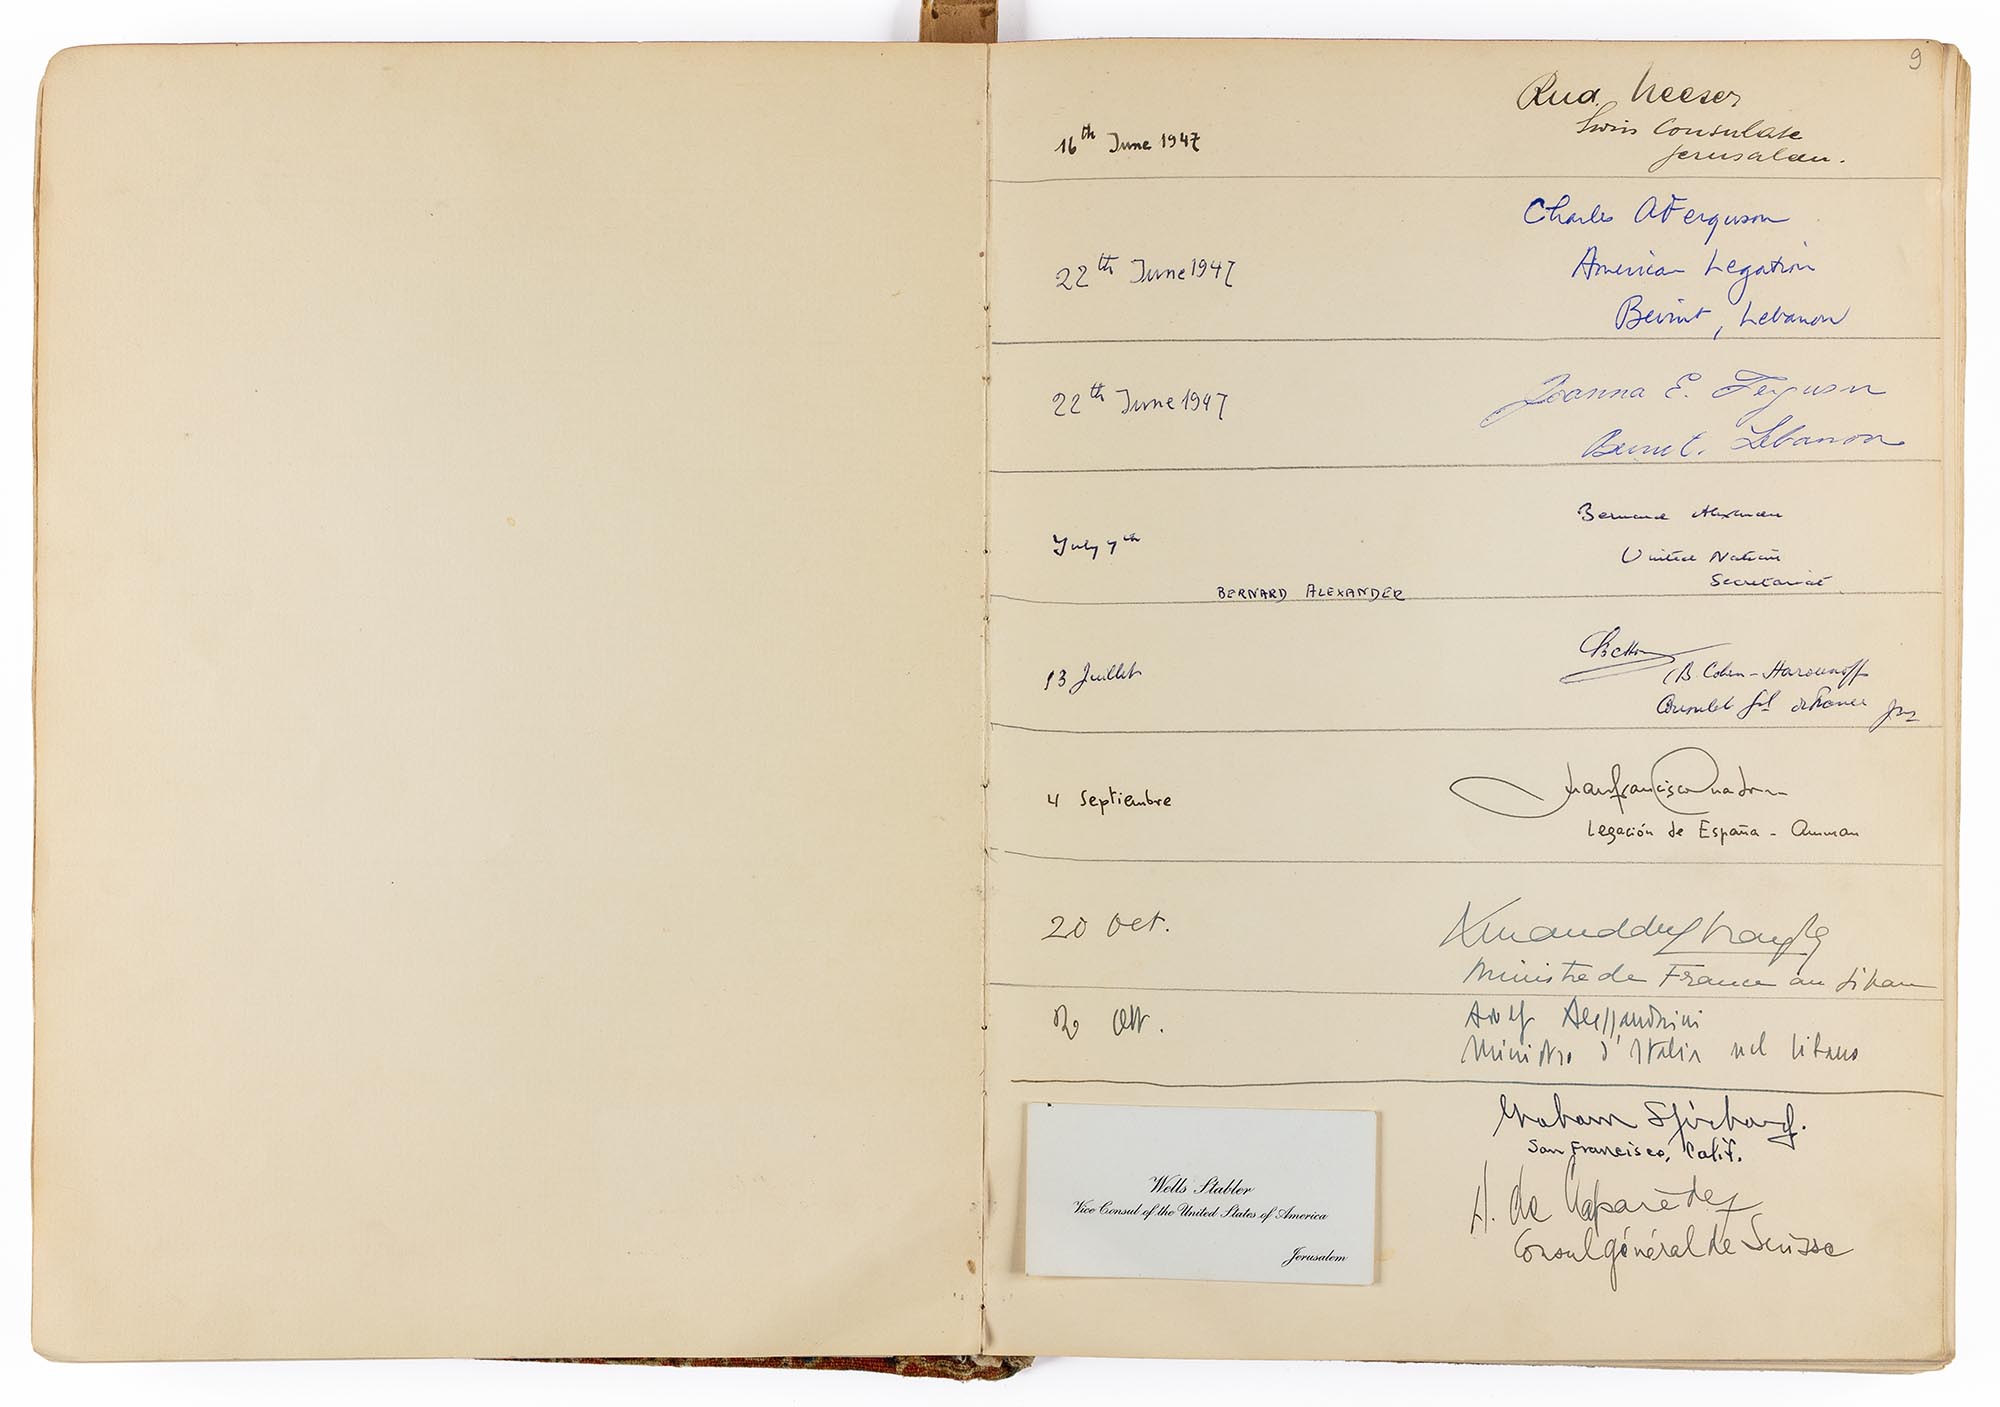 9
16th June 1947
Swiss Consulate
Jerusalem.
22th June 1947
Charles A Ferguson
American Legation
Beirut, Lebanon
22th June 1947
Joanna E. Ferguson
Beirut. Lebanon
July 7th
Bernard Alexander
United Nations
Secretariat
BERNARD ALEXANDER
13 Juillet
(B Cohen-Harounoff
Consulat Gal de France
4 Septiembre
Juan Francisco
Legación de España - Amman
20 Oct.
Ministre de France au Liban
20 Ott.
Adolf Alessandrini
Ministro d'Italia nel Libano
San Francisco, Calif.
Wells Stabler
Vice Consul of the United States of America
Jerusalem
H. de
Consul général de Suisse